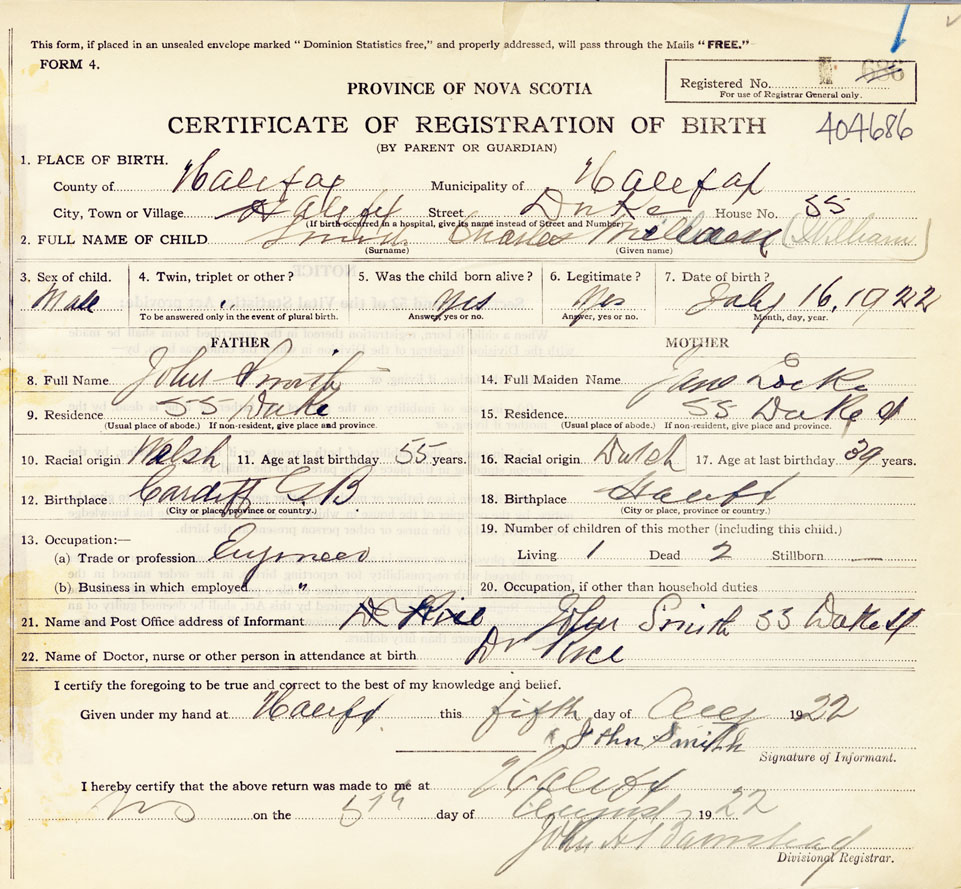 This form, if placed in an unsealed envelope marked "Dominion Statistics free," and properly addressed, will pass through the Mails "FREE."
FORM 4.
Registered No. 686
For use of Registrar General only.
PROVINCE OF NOVA SCOTIA
CERTIFICATE OF REGISTRATION OF BIRTH 404686
(BY PARENT OR GUARDIAN)
1. PLACE OF BIRTH.
County of Halifax Municipality of Halifax
City, Town or Village Halifax Street Duke House No. 55
(If birth occurred in a hospital, give its name instead of Street and Number)
2. FULL NAME OF CHILD Smith Charles William (William)
(Surname) (Given name)
3. Sex of child. 4. Twin, triplet or other? 5. Was the child born alive? 6. Legitimate? 7. Date of birth?
Male Yes Yes July 16, 1922
To be answered only in the event of plural birth. Answer, yes or no. Answer, yes or no. Month, day, year.
FATHER MOTHER
8. Full Name John Smith 14. Full Maiden Name Jane Locke
9. Residence 55 Duke 15. Residence. 55 Duke St
(Usual place of abode.) If non-resident, give place and province. (Usual place of abode.) If non-resident, give place and province.
10. Racial origin Welsh 11. Age at last birthday 55 years. 16. Racial origin Dutch 17. Age at last birthday 39 years.
12. Birthplace Cardiff GB 18. Birthplace Halifx
(City or place, province or country.) (City or place, province or country.)
19. Number of children of this mother (including this child.)
13. Occupation:—
(a) Trade or profession Engineer Living 1 Dead 2 Stillborn —
(b) Business in which employed " 20. Occupation, if other than household duties
21. Name and Post Office address of Informant Dr Rice John Smith 55 Duke St
22. Name of Doctor, nurse or other person in attendance at birth Dr Rice
I certify the foregoing to be true and correct to the best of my knowledge and belief.
Given under my hand at Halifx this fifth day of Aug 1922
John Smith
Signature of Informant.
I hereby certify that the above return was made to me at Halifx
on the 5th day of August 1922
John A Barnstead
Divisional Registrar.